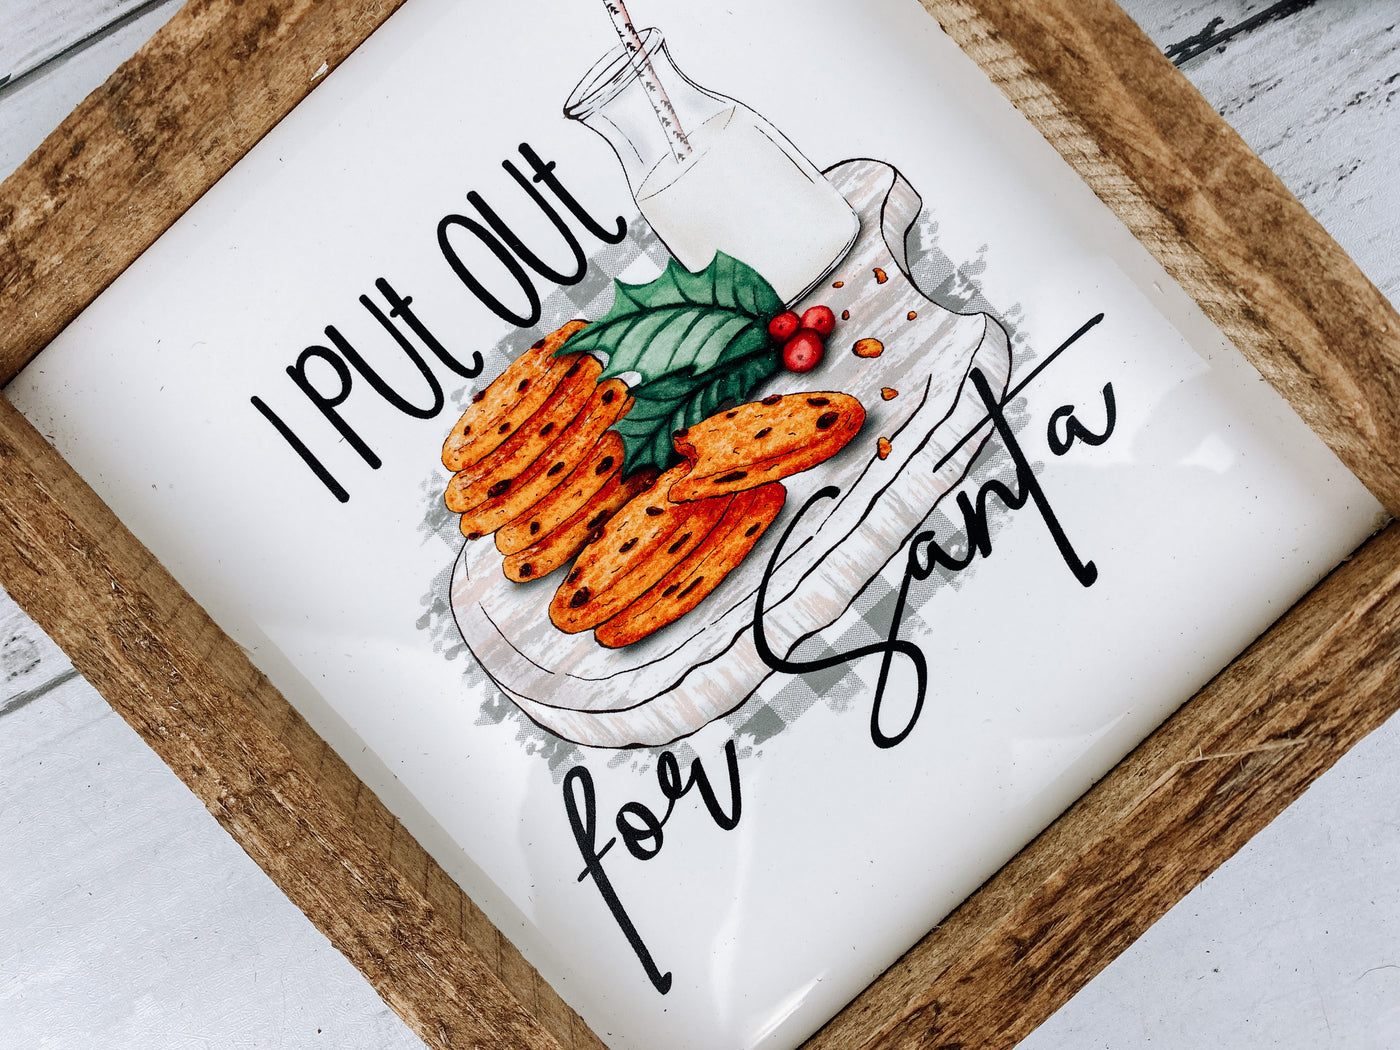 I PUt OUt
for Santa